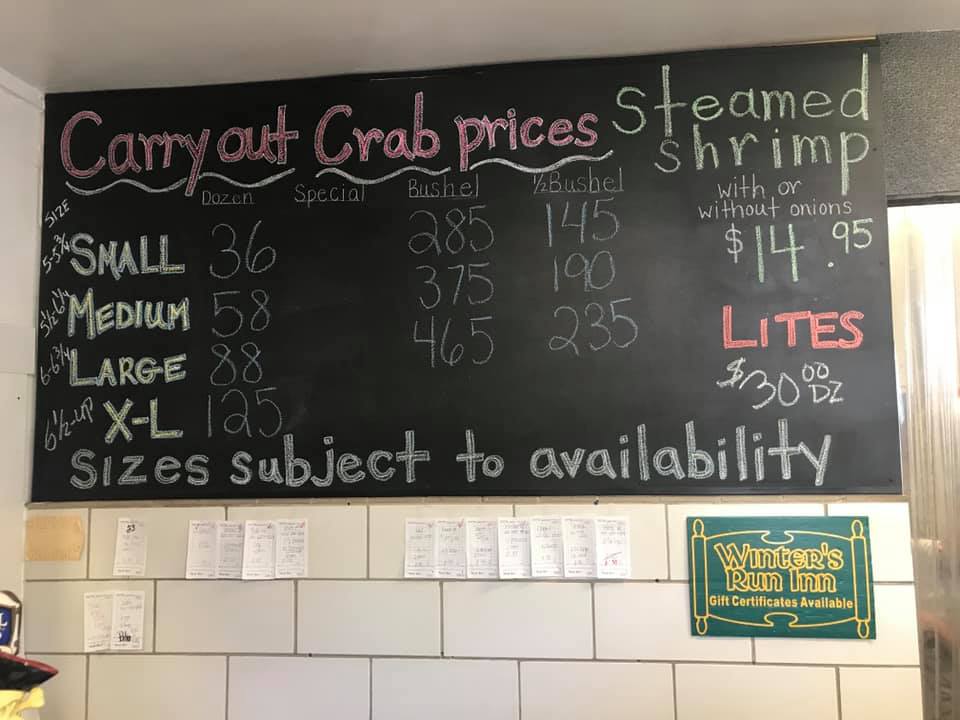 Carry out Crab prices
Steamed
shrimp
with or
without onions
$14.95
LITES
$30 00 DZ
SIZE Dozen Special Bushel 1/2 Bushel
5-5 3/4 SMALL 36 285 145
5 1/2 - 6 1/4 MEDIUM 58 375 190
6-6 3/4 LARGE 88 465 235
6 1/2 - UP X-L 125
Sizes subject to availability
53
WINTER'S
RUN INN
Gift Certificates Available